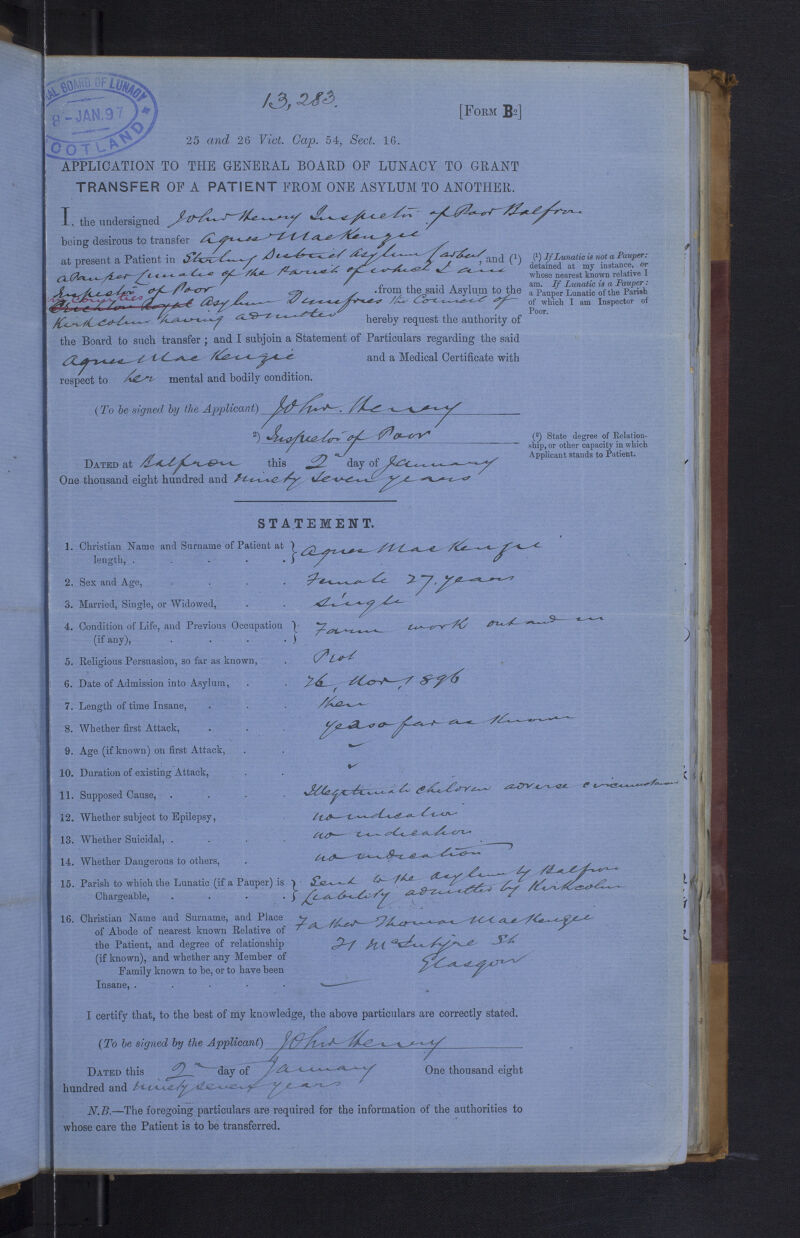 AL BOARD OF LUNACY
8 - JAN. 97
SCOTLAND
13,283.
[FORM B2]
25 and 26 Vict. Cap. 54, Sect. 16.
APPLICATION TO THE GENERAL BOARD OF LUNACY TO GRANT
TRANSFER OF A PATIENT FROM ONE ASYLUM TO ANOTHER.
I, the undersigned John Henry Inspector of Poor Balfron
being desirous to transfer Agnes MacKenzie
at present a Patient in Stirling District Asylum Larbert, and (1)
a Pauper Lunatic of the Parish of which I am
Inspector of Poor .from the said Asylum to the
Crichton Royal Asylum Dumfries the Council of
Kirkcolm having admitted hereby request the authority of
the Board to such transfer ; and I subjoin a Statement of Particulars regarding the said
Agnes MacKenzie and a Medical Certificate with
respect to her mental and bodily condition.
(1) If Lunatic is not a Pauper:
detained at my instance, or
whose nearest known relative I
am. If Lunatic is a Pauper:
a Pauper Lunatic of the Parish
of which I am Inspector of
Poor.
(To be signed by the Applicant) John. Henry
2) Inspector of Poor
(2) State degree of Relation-
ship, or other capacity in which
Applicant stands to Patient.
DATED at Balfron this 2nd day of January
One thousand eight hundred and ninety seven years
STATEMENT.
1. Christian Name and Surname of Patient at
length, . . . . . } Agnes MacKenzie
2. Sex and Age, . . . . Female 27. years
3. Married, Single, or Widowed, . . Single
4. Condition of Life, and Previous Occupation
(if any), . . . . } Farm work out and in
5. Religious Persuasion, so far as known, . Prot
6. Date of Admission into Asylum, . . 26, Nov, 1896
7. Length of time Insane, . . . then
8. Whether first Attack, . . . yes so far as known
9. Age (if known) on first Attack, . . "
10. Duration of existing Attack, . . "
11. Supposed Cause, . . . . Illegitimate children adverse circumstances
12. Whether subject to Epilepsy, . . no indication
13. Whether Suicidal, . . . . no indication
14. Whether Dangerous to others, . no indication
15. Parish to which the Lunatic (if a Pauper) is
Chargeable, . . . . } Sent to the asylum by Balfron
Liability admitted by Kirkcolm
16. Christian Name and Surname, and Place
of Abode of nearest known Relative of
the Patient, and degree of relationship
(if known), and whether any Member of
Family known to be, or to have been
Insane, . . . . .
Father Thomas MacKenzie
21 McIntyre St
Glasgow
I certify that, to the best of my knowledge, the above particulars are correctly stated.
(To be signed by the Applicant) John Henry
DATED this 2nd day of January One thousand eight
hundred and ninety seven years
N.B.—The foregoing particulars are required for the information of the authorities to
whose care the Patient is to be transferred.